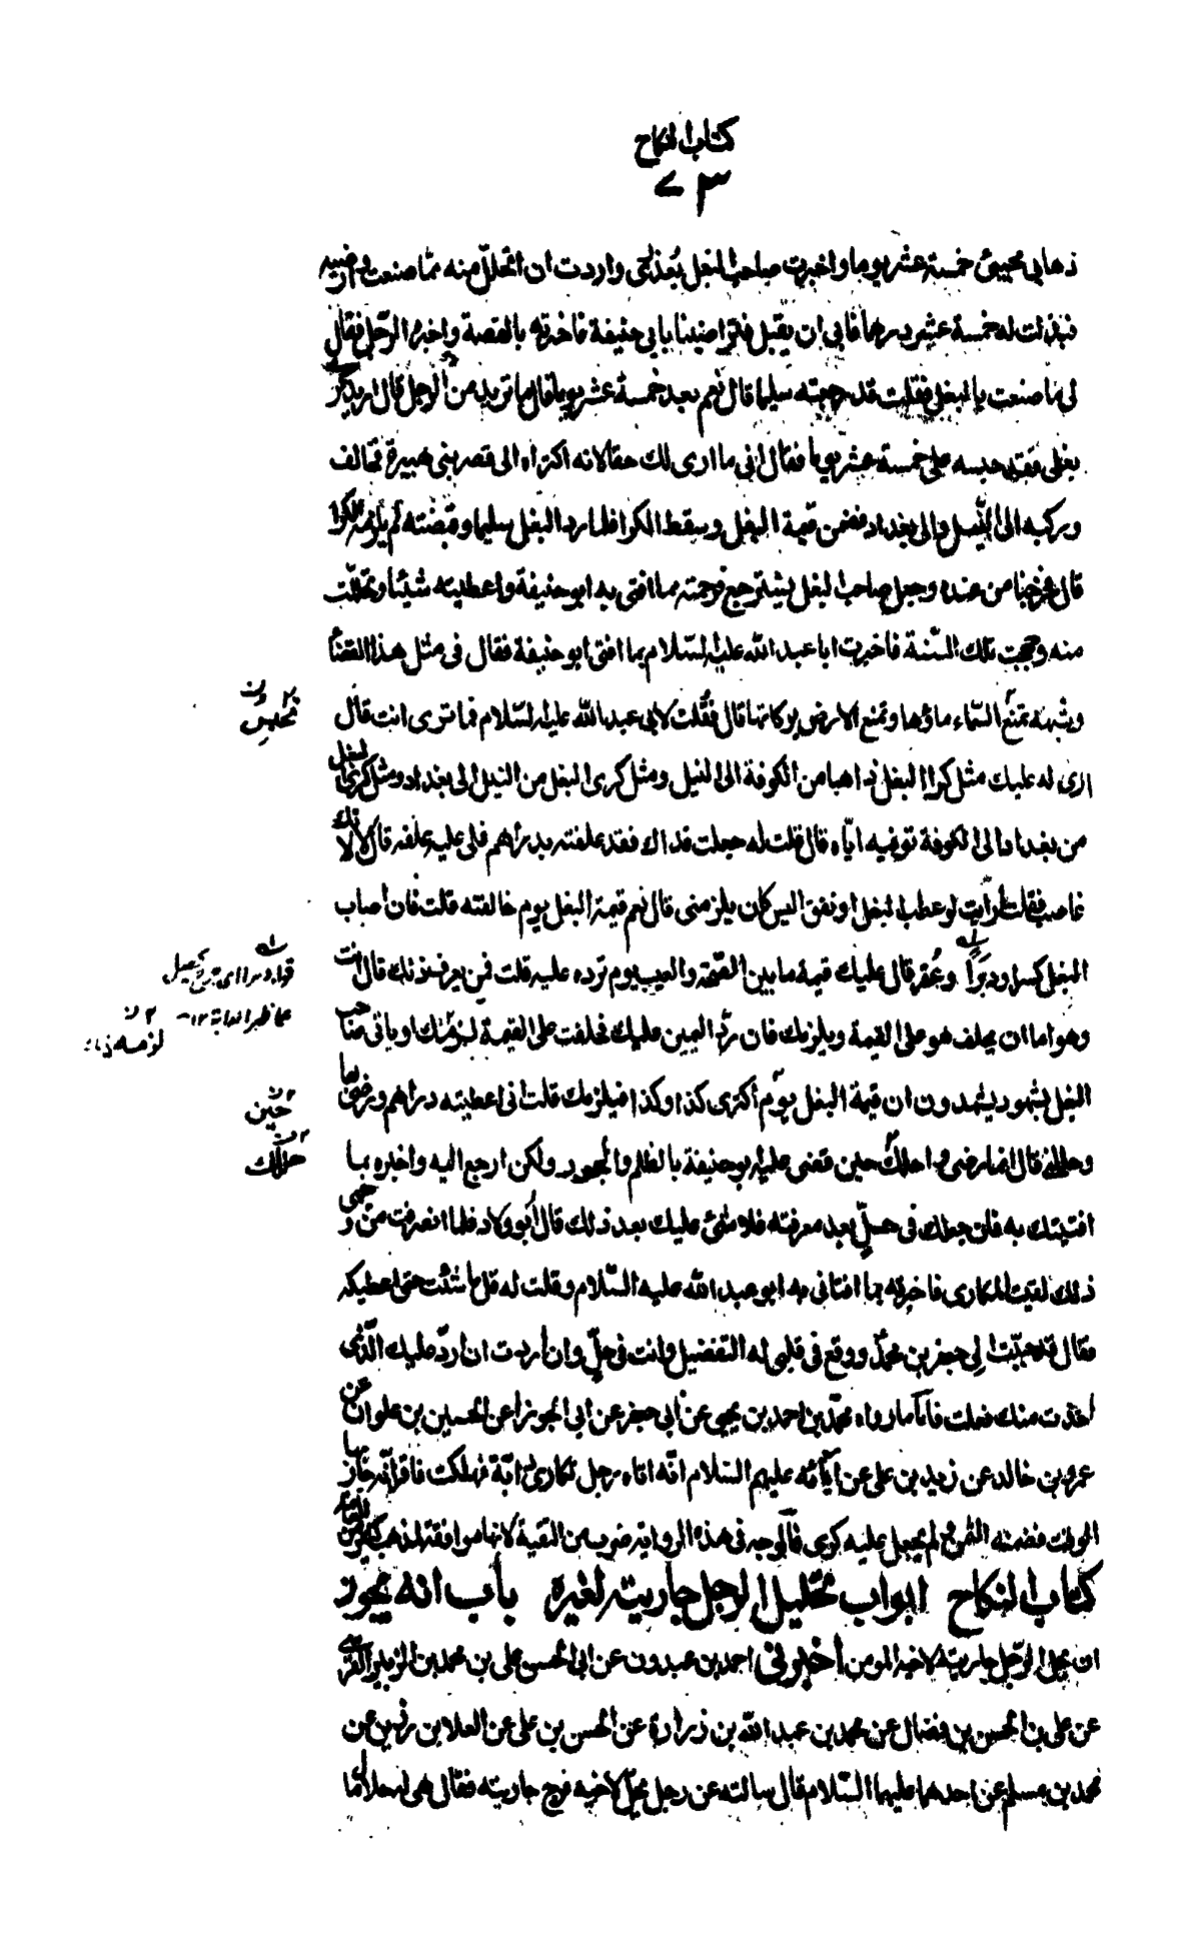 كتاب النكاح
٧٣
ذهابى ومجيئى خمسة عشر يوما واخبرت صاحب البغل بعذرى واردت ان اتحلل منه مما صنعت وارضيه
فبذلت له خمسة عشر درهما فابى ان يقبل فتراضينا بابى حنيفة فاخبرته بالقصة واخبره الرجل فقال
لى ما صنعت بالبغل فقلت قد رجعته سليما قال نعم بعد خمسة عشر يوما قال ما تريد من الرجل قال اريد كرى
بغلى فقد حبسه على خمسة عشر يوما فقال انى ما ارى لك حقا لانه اكتراه الى قصر بنى هبيرة فخالف
وركبه الى النيل والى بغداد فضمن قيمة البغل وسقط الكرا فلما رد البغل سليما وقبضته لم يلزمه الكرا
قال فخرجنا من عنده وجعل صاحب البغل يسترجع فرحمته مما افتى به ابو حنيفة واعطيته شيئا وتحللت
منه وحججت تلك السنة فاخبرت ابا عبد الله عليه السلام بما افتى ابو حنيفة فقال فى مثل هذا القضا
وشبهه تمنع السماء ماؤها وتمنع الارض بركاتها قال فقلت لابى عبد الله عليه السلام فما ترى انت قال
تحبس
ارى له عليك مثل كرا البغل ذاهبا من الكوفة الى النيل ومثل كرى البغل من النيل الى بغداد ومثل كرى البغل
من بغداد الى الكوفة توفيه اياه قال قلت له جعلت فداك فقد علفته بدراهم فلى عليه علفه قال لا لانك
غاصب فقلت أرأيت لو عطب البغل او نفق اليس كان يلزمنى قال نعم قيمة البغل يوم خالفته قلت فان اصاب
البغل كسر او دبرا وعقر قال عليك قيمة ما بين الصحة والعيب يوم ترده عليه قلت فمن يعرف ذلك قال انت
وهو اما ان يحلف هو على القيمة ويلزمك فان رد اليمين عليك فحلفت على القيمة لزمك او ياتى صاحب
البغل بشهود يشهدون ان قيمة البغل يوم اكترى كذا وكذا فيلزمك قلت انى اعطيته دراهم ورضى بها
حين
وحللنى قال انما رضى واحلك حين قضى عليه ابو حنيفة بالظلم والجور ولكن ارجع اليه واخبره بما
حللك
افتيتك به فان جعلك فى حل بعد معرفته فلا شئ عليك بعد ذلك قال أبو ولاد فلما انصرفت من وجهى
ذلك لقيت المكارى فاخبرته بما افتانى به ابو عبد الله عليه السلام وقلت له قل ما شئت حتى اعطيكه
فقال قد حببت الى جعفر بن محمد ووقع فى قلبى له التفضيل وانت فى حل وان أردت ان ارد عليك الذى
اخذت منك فعلت فاما ما رواه محمد بن احمد بن يحيى عن ابى جعفر عن ابى الجوزا عن الحسين بن علوان عن
عمرو بن خالد عن زيد بن على عن آبائه عليهم السلام انه اتاه رجل تكارى دابة فهلكت فاقر انه جاز بها
الوقت فضمنه الثمن ولم يجعل عليه كرى فالوجه فى هذه الرواية ضرب من التقية لانها موافقة لمذهب كثير من العامة
كتاب النكاح ابواب تحليل الرجل جاريته لغيره باب انه يجوز
ان يحل الرجل جاريته لاخيه المومن اخبرنى احمد بن عبدون عن ابى الحسن على بن محمد بن الزبير القرشى
عن على بن الحسن بن فضال عن محمد بن عبد الله بن زرارة عن الحسن بن على عن العلا بن رزين عن
محمد بن مسلم عن احدهما عليهما السلام قال سالته عن رجل يحل لاخيه فرج جاريته فقال هى له حلال ما